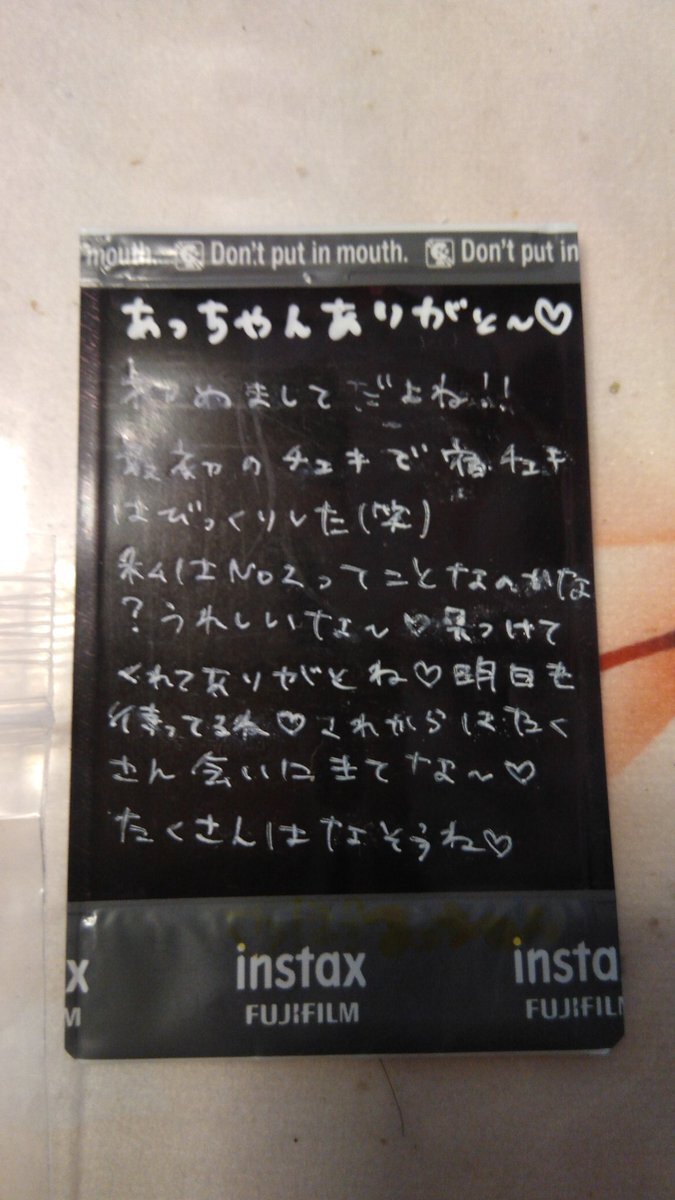 mouth. Don't put in mouth. Don't put in
あっちゃんありがと〜♡
初めましてだよね!!
最初のチェキで宿チェキ
はびっくりした(笑)
私はNo2ってことなのかな
?うれしいな〜♡見つけて
くれてありがとね♡明日も
待ってるね♡これからはたく
さん会いにきてな〜♡
たくさんはなそうね♡
x instax insta
M FUJIFILM FUJIFIL